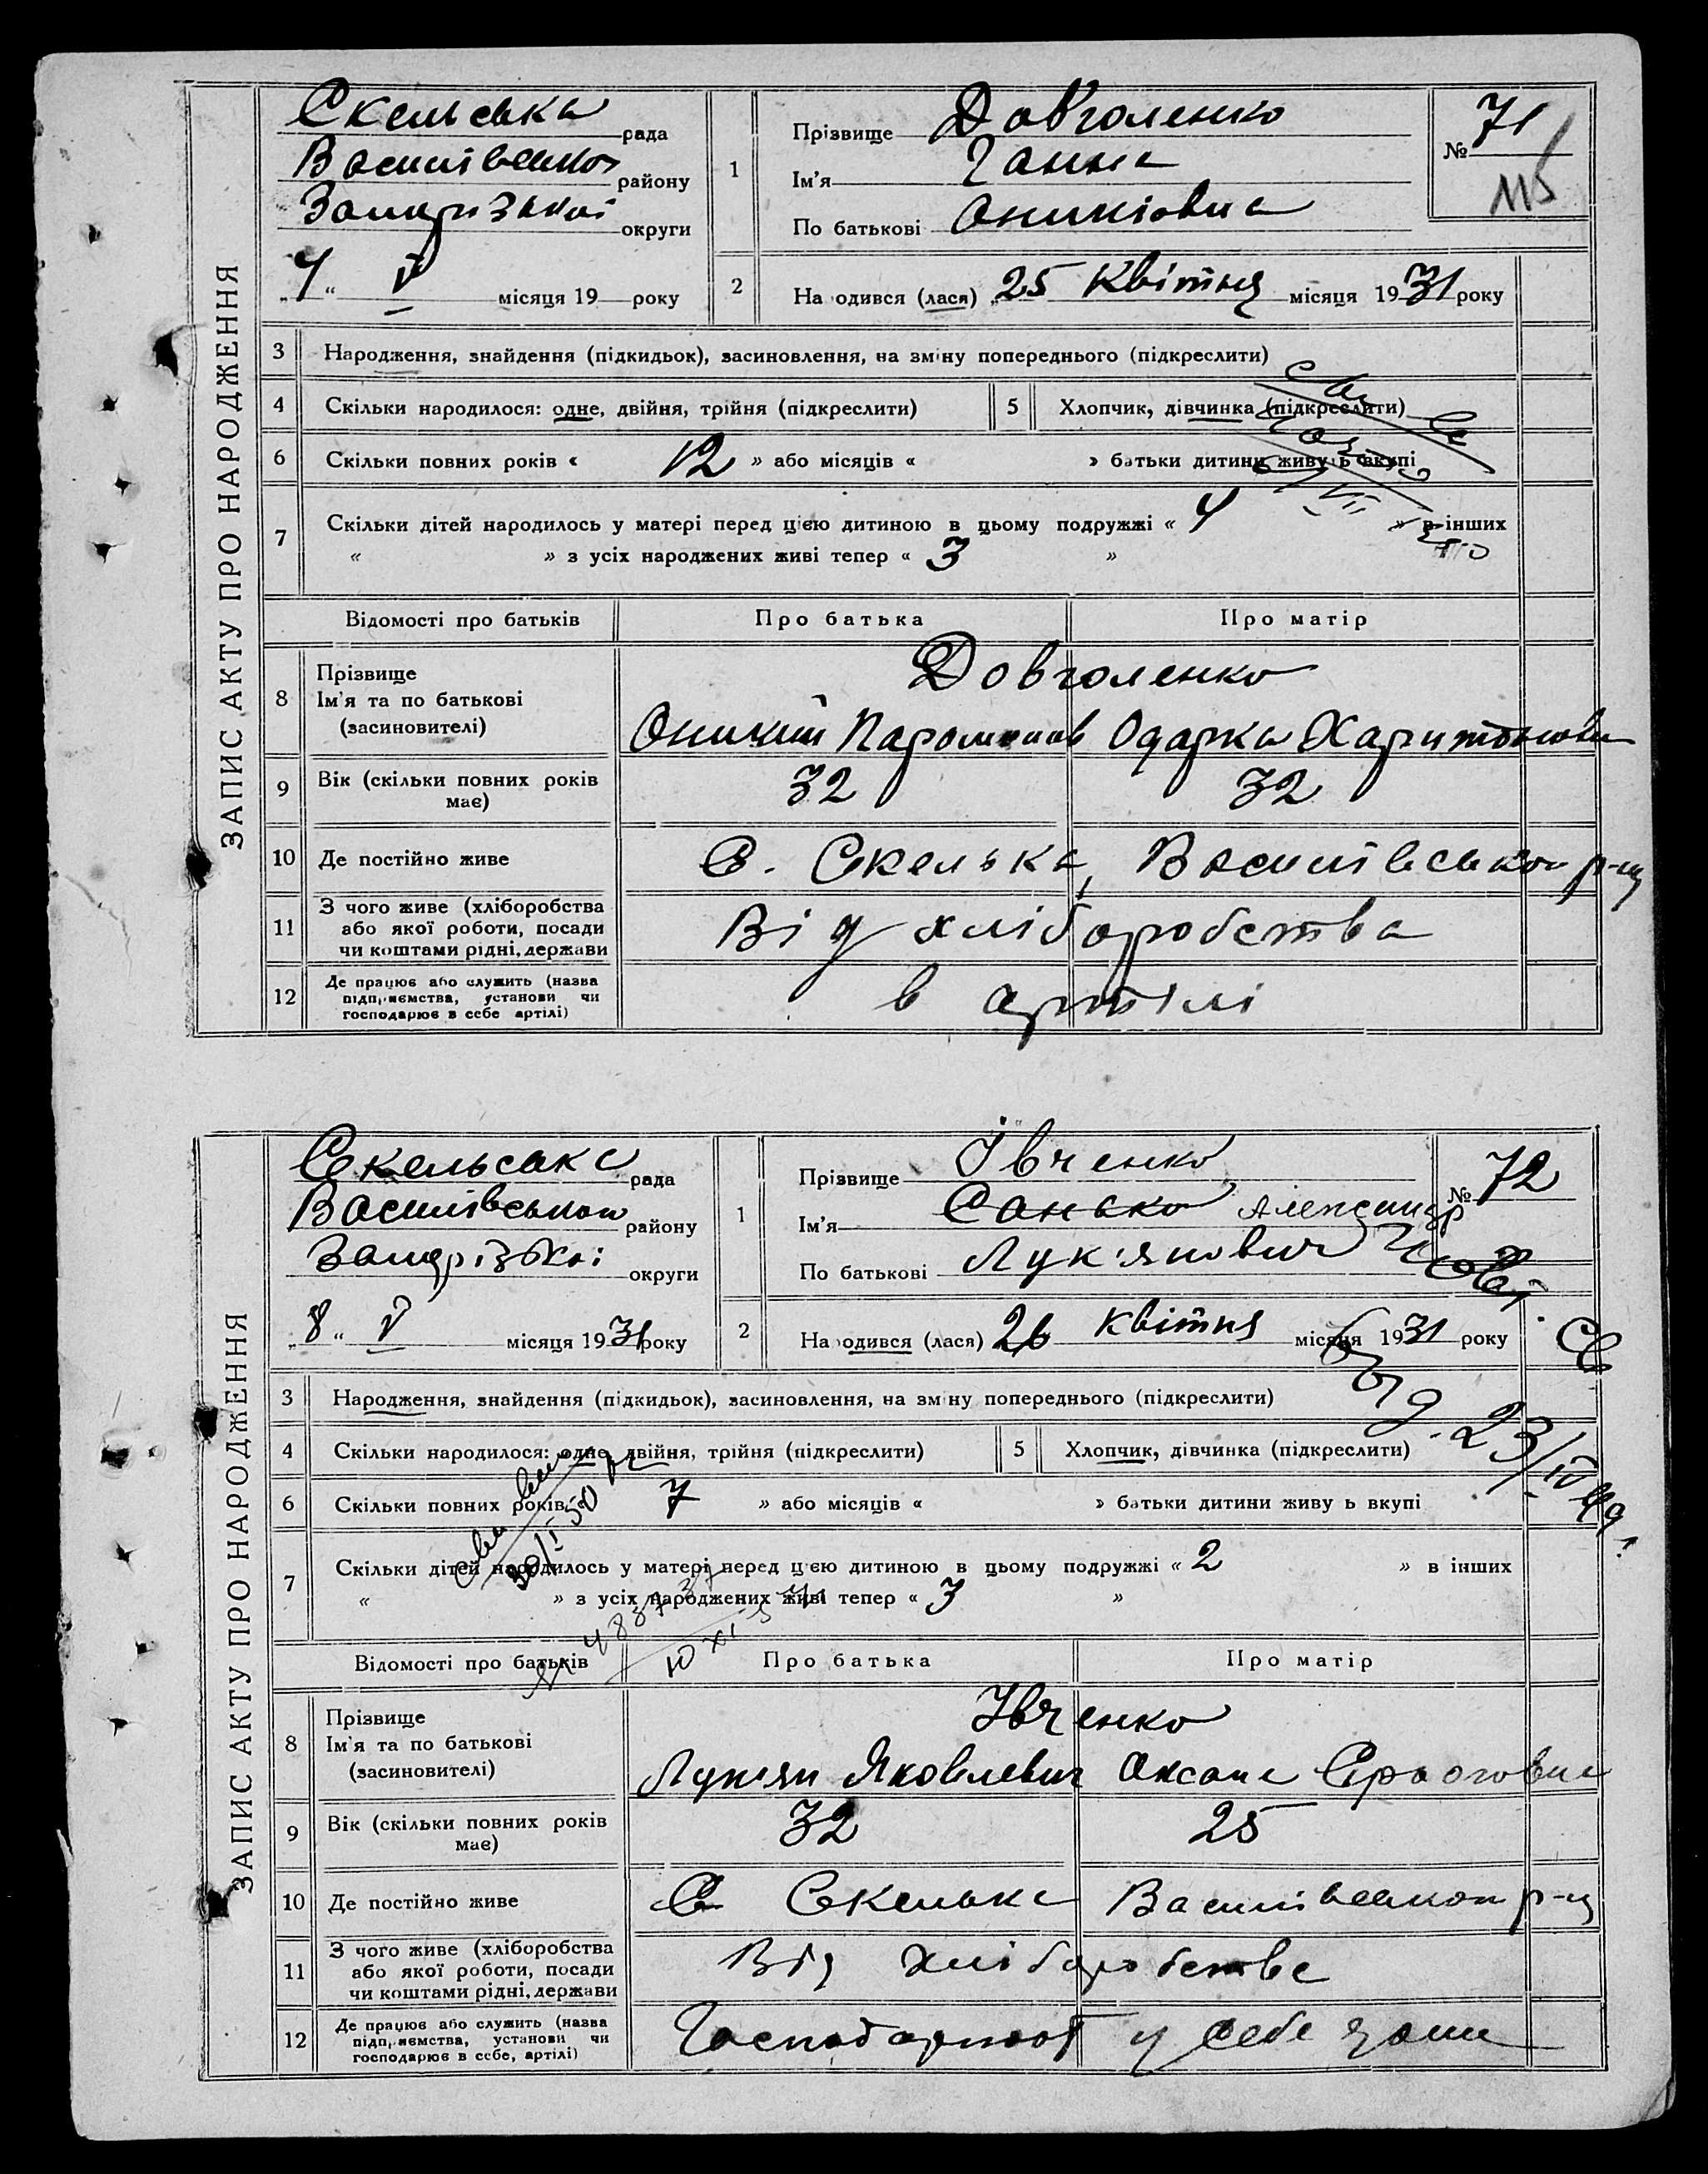 ЗАПИС АКТУ ПРО НАРОДЖЕННЯ
Скельська рада
Василівської району
Запорізької округи
"7" V місяця 19 року
1 Прізвище Довголенко
Ім'я Ганна
По батькові Оникіовна
№ 71
115
2 На одився (лася) 25 Квітня місяця 1931 року
3 Народження, знайдення (підкидьок), засиновлення, на зміну попереднього (підкреслити)
4 Скільки народилося: одне, двійня, трійня (підкреслити)
5 Хлопчик, дівчинка (підкреслити)
6 Скільки повних років « 12 » або місяців « » батьки дитини живуть вкупі
7 Скільки дітей народилось у матері перед цією дитиною в цьому подружжі « 4 » в інших
« » з усіх народжених живі тепер « 3 »
Відомості про батьків Про батька Про матір
8 Прізвище
Ім'я та по батькові
(засиновителі)
Довголенко
Оникий Одарка
9 Вік (скільки повних років має) 32 32
10 Де постійно живе С. Скелька, Василівської р-ну
11 З чого живе (хліборобства або якої роботи, посади чи коштами рідні, держави
Від хліборобства
12 Де працює або служить (назва підприємства, установи чи господарює в себе артілі)
в артілі
ЗАПИС АКТУ ПРО НАРОДЖЕННЯ
Скельська рада
Василівської району
Запорізької округи
"8" V місяця 1931 року
1 Прізвище Івченко
Ім'я Санько Александр
По батькові Лук'янович
№ 72
2 На одився (лася) 26 Квітня місяця 1931 року
3 Народження, знайдення (підкидьок), засиновлення, на зміну попереднього (підкреслити)
4 Скільки народилося: одне, двійня, трійня (підкреслити)
5 Хлопчик, дівчинка (підкреслити)
6 Скільки повних років 7 » або місяців « » батьки дитини живу ь вкупі
7 Скільки дітей народилось у матері перед цією дитиною в цьому подружжі « 2 » в інших
« » з усіх народжених живі тепер « 3 »
Відомості про батьків Про батька Про матір
8 Прізвище
Ім'я та по батькові
(засиновителі)
Івченко
Лукян Яковлевич Оксана
9 Вік (скільки повних років має) 32 25
10 Де постійно живе С Скелька Василівської р-ну
11 З чого живе (хліборобства або якої роботи, посади чи коштами рідні, держави
Від хліборобства
12 Де працює або служить (назва підприємства, установи чи господарює в себе, артілі)
Господарюют у себе дома